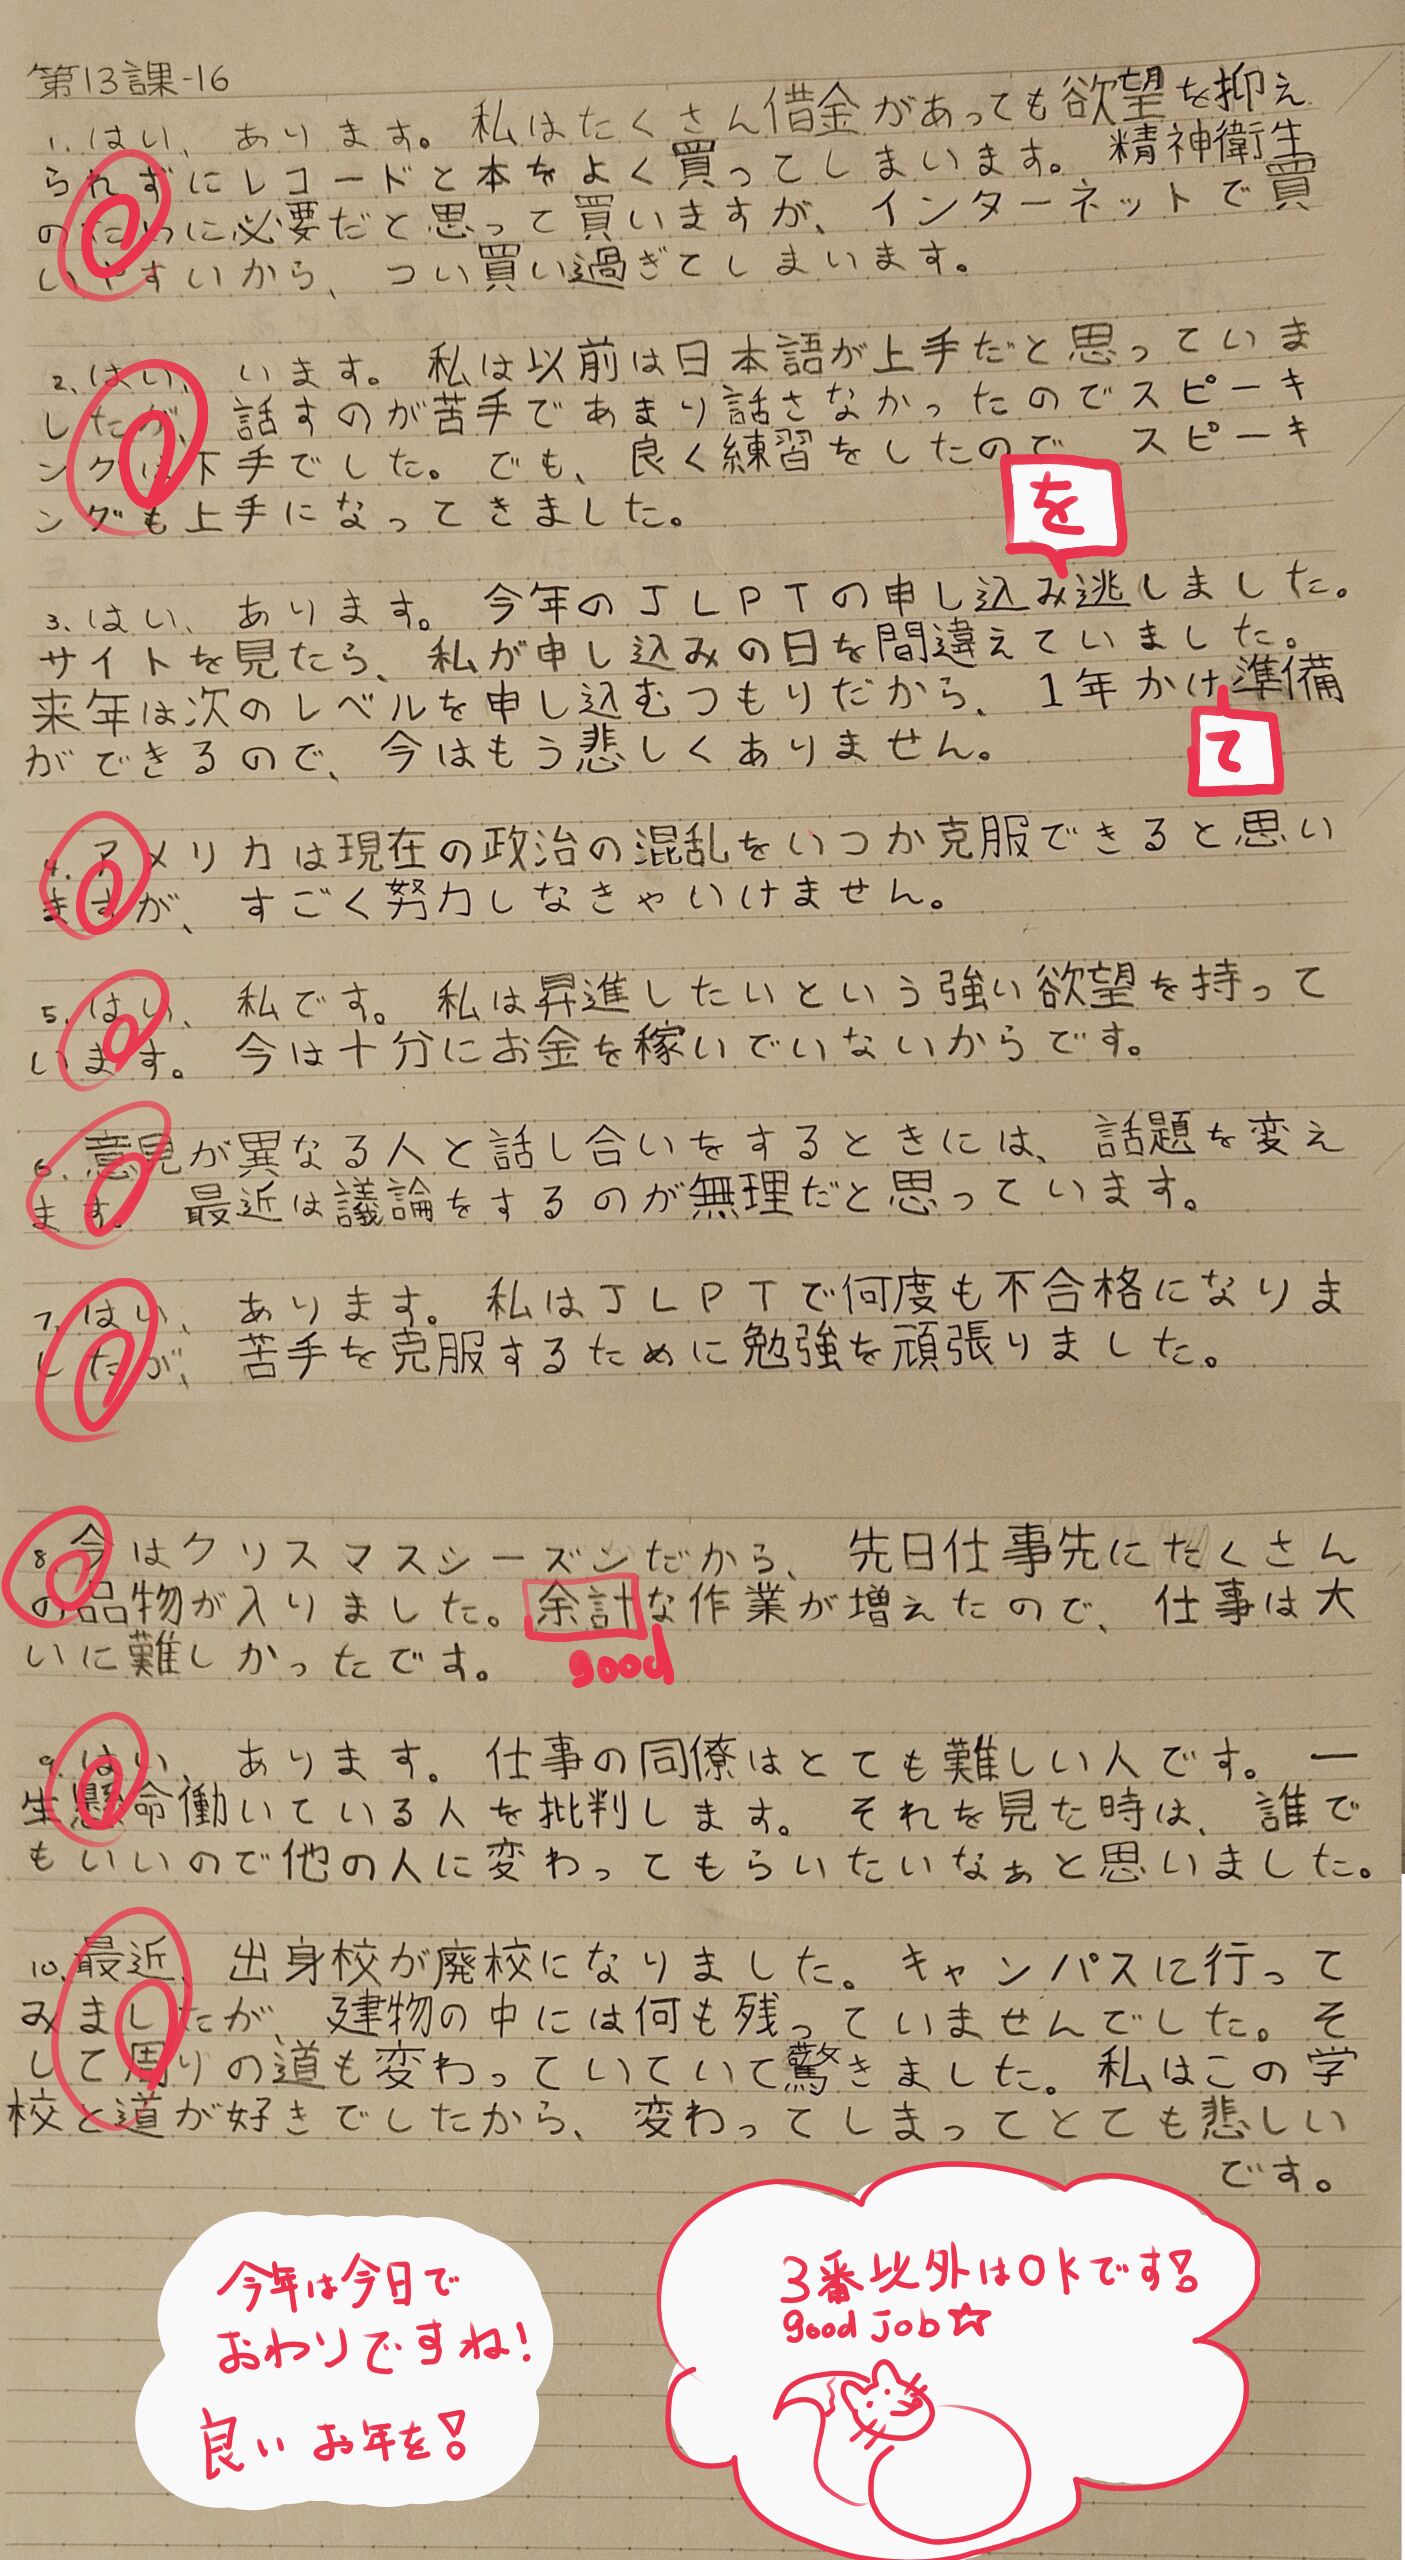 第13課-16
1. はい、あります。私はたくさん借金があっても欲望を抑え
られずにレコードと本をよく買ってしまいます。精神衛生
のために必要だと思って買いますが、インターネットで買
いやすいから、つい買い過ぎてしまいます。
2. はい、います。私は以前は日本語が上手だと思っていま
したが、話すのが苦手であまり話さなかったのでスピーキ
ングは下手でした。でも、良く練習をしたので、スピーキ
ングも上手になってきました。
を
3. はい、あります。今年のJLPTの申し込み逃しました。
サイトを見たら、私が申し込みの日を間違えていました。
来年は次のレベルを申し込むつもりだから、1年かけ準備
て
ができるので、今はもう悲しくありません。
4. アメリカは現在の政治の混乱をいつか克服できると思い
ますが、すごく努力しなきゃいけません。
5. はい、私です。私は昇進したいという強い欲望を持って
います。今は十分にお金を稼いでいないからです。
6. 意見が異なる人と話し合いをするときには、話題を変え
ます。最近は議論をするのが無理だと思っています。
7. はい、あります。私はJLPTで何度も不合格になりま
したが、苦手を克服するために勉強を頑張りました。
8. 今はクリスマスシーズンだから、先日仕事先にたくさん
の品物が入りました。余計な作業が増えたので、仕事は大
いに難しかったです。
good
9. はい、あります。仕事の同僚はとても難しい人です。一
生懸命働いている人を批判します。それを見た時は、誰で
もいいので他の人に変わってもらいたいなぁと思いました。
10. 最近、出身校が廃校になりました。キャンパスに行って
みましたが、建物の中には何も残っていませんでした。そ
して周りの道も変わっていていて驚きました。私はこの学
校と道が好きでしたから、変わってしまってとても悲しい
です。
今年は今日で
おわりですね!
良いお年を!
3番以外はOKです!
good job☆